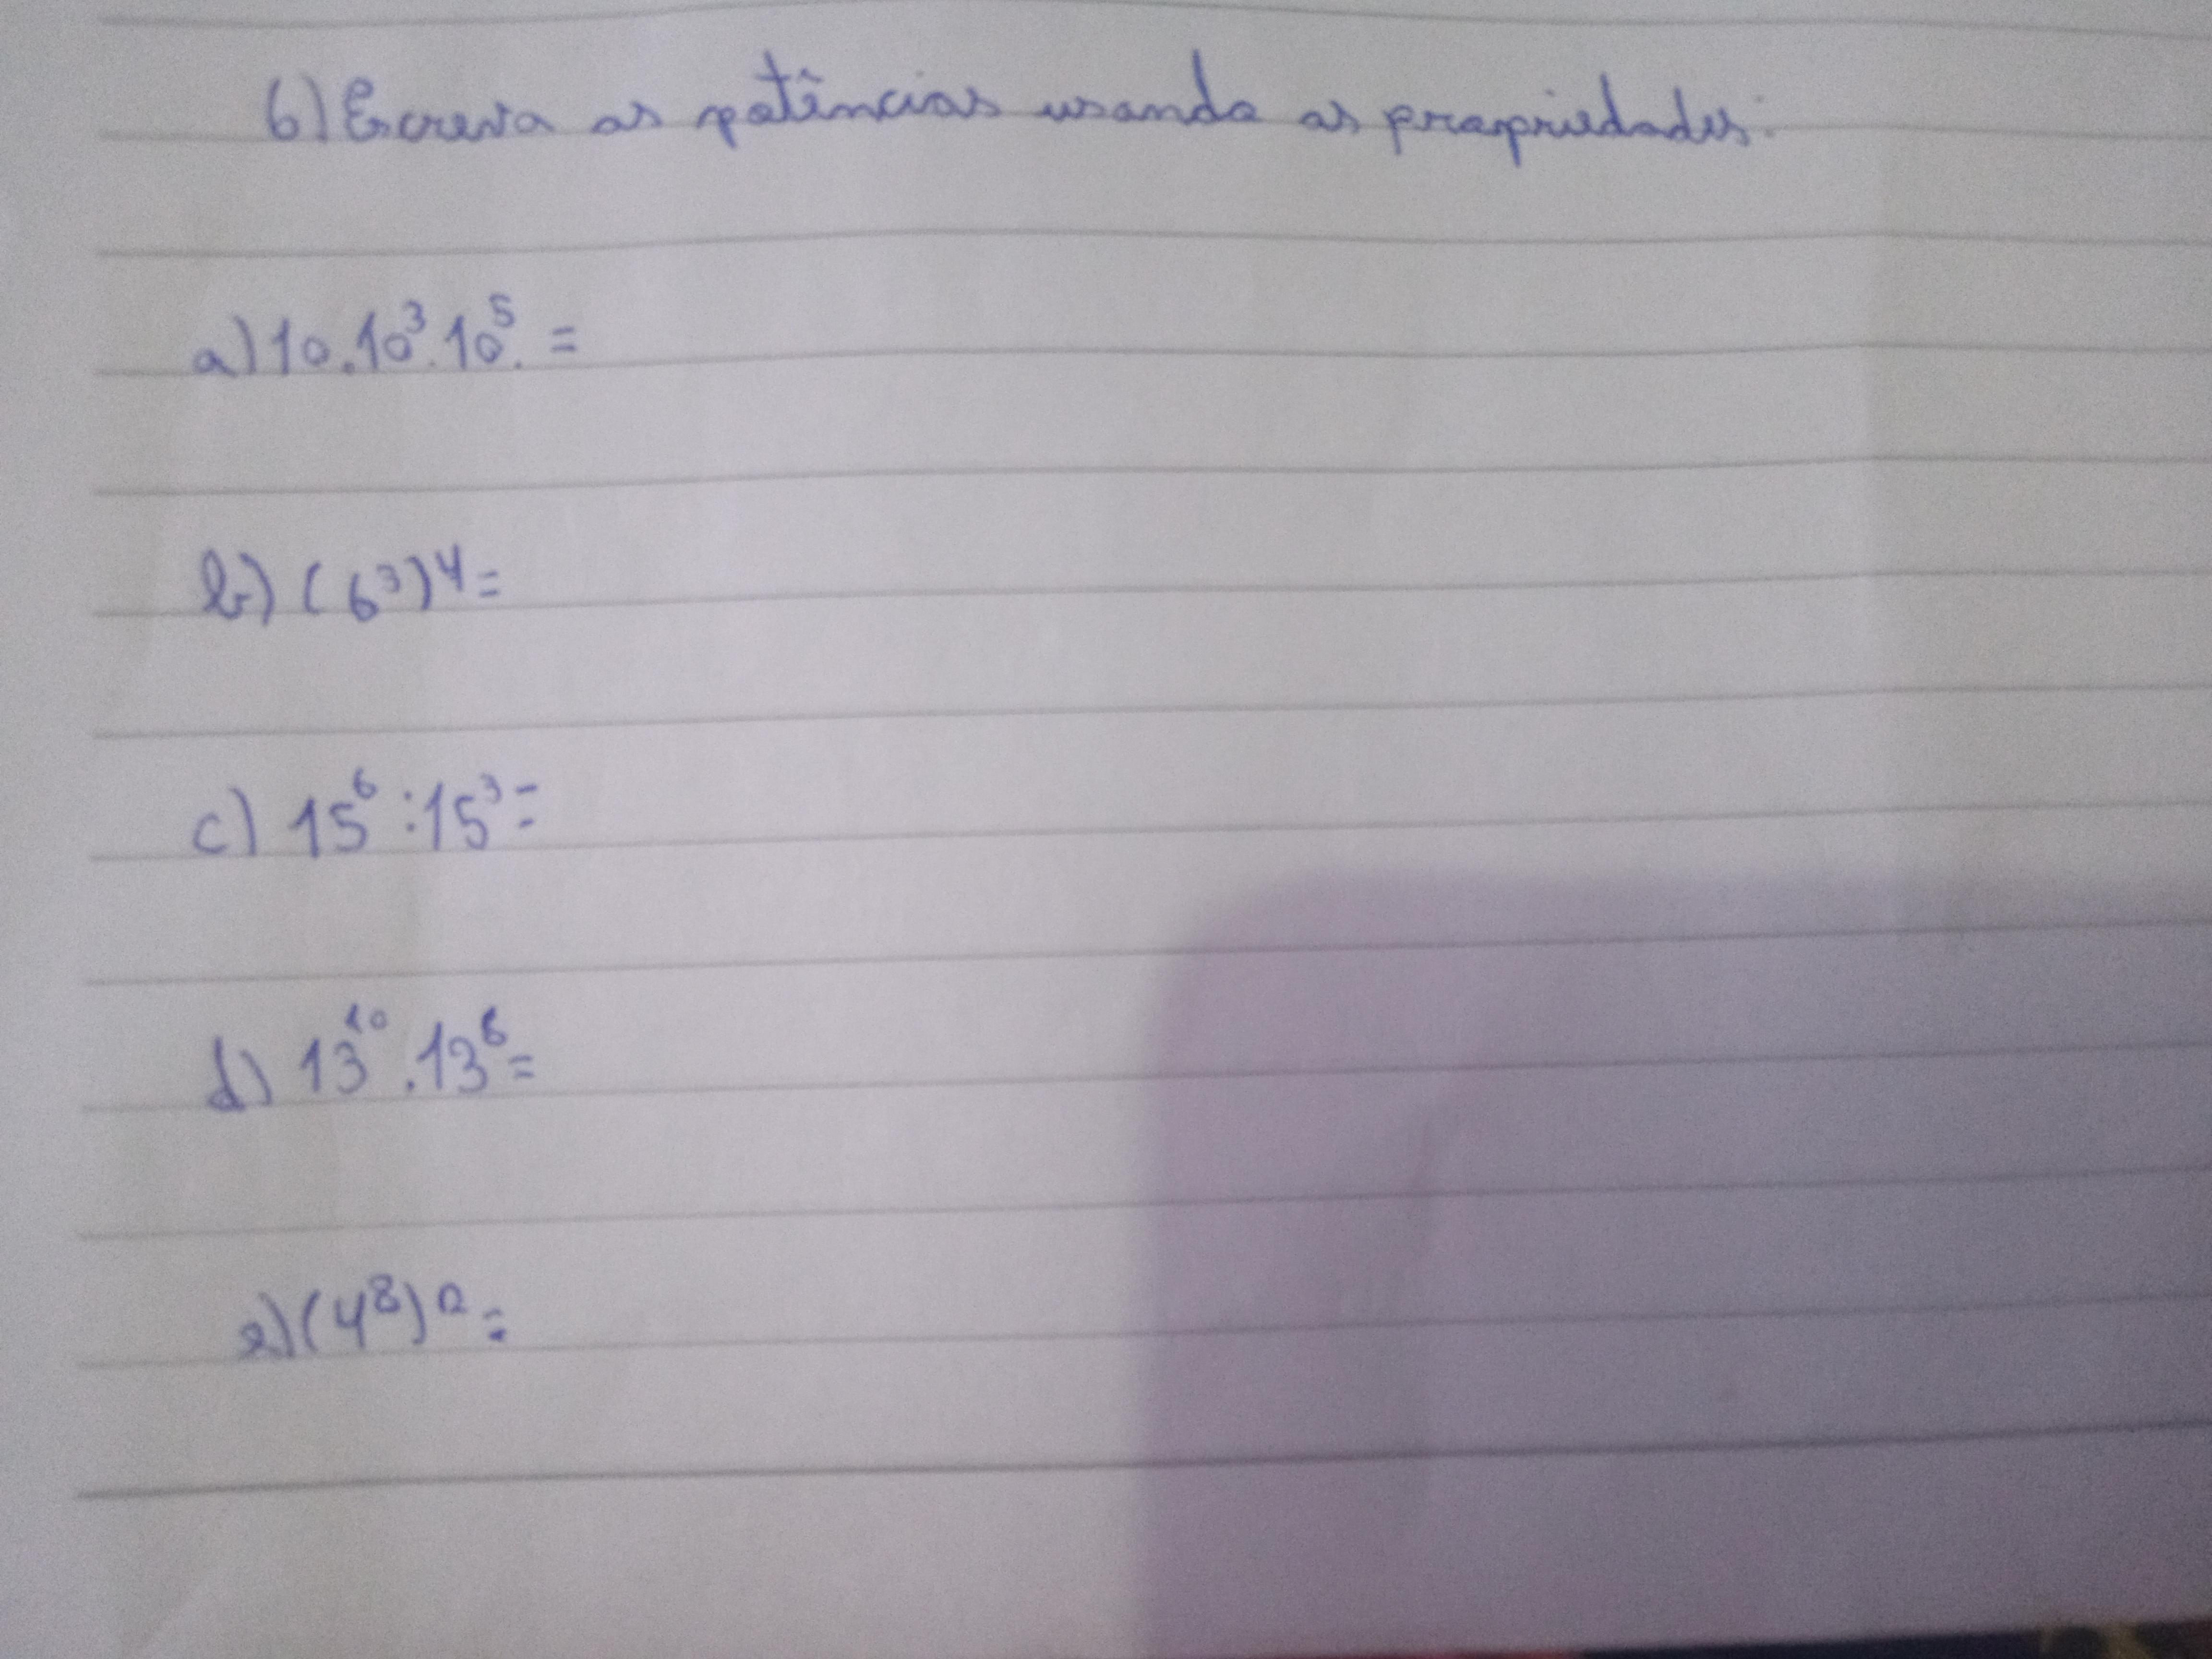 6) Escreva as potências usando as propriedades:
a) 10.10³.10⁵. =
b) (6³)⁴ =
c) 15⁶ : 15³ =
d) 13¹⁰ . 13⁶ =
e) (4⁸)⁰ =